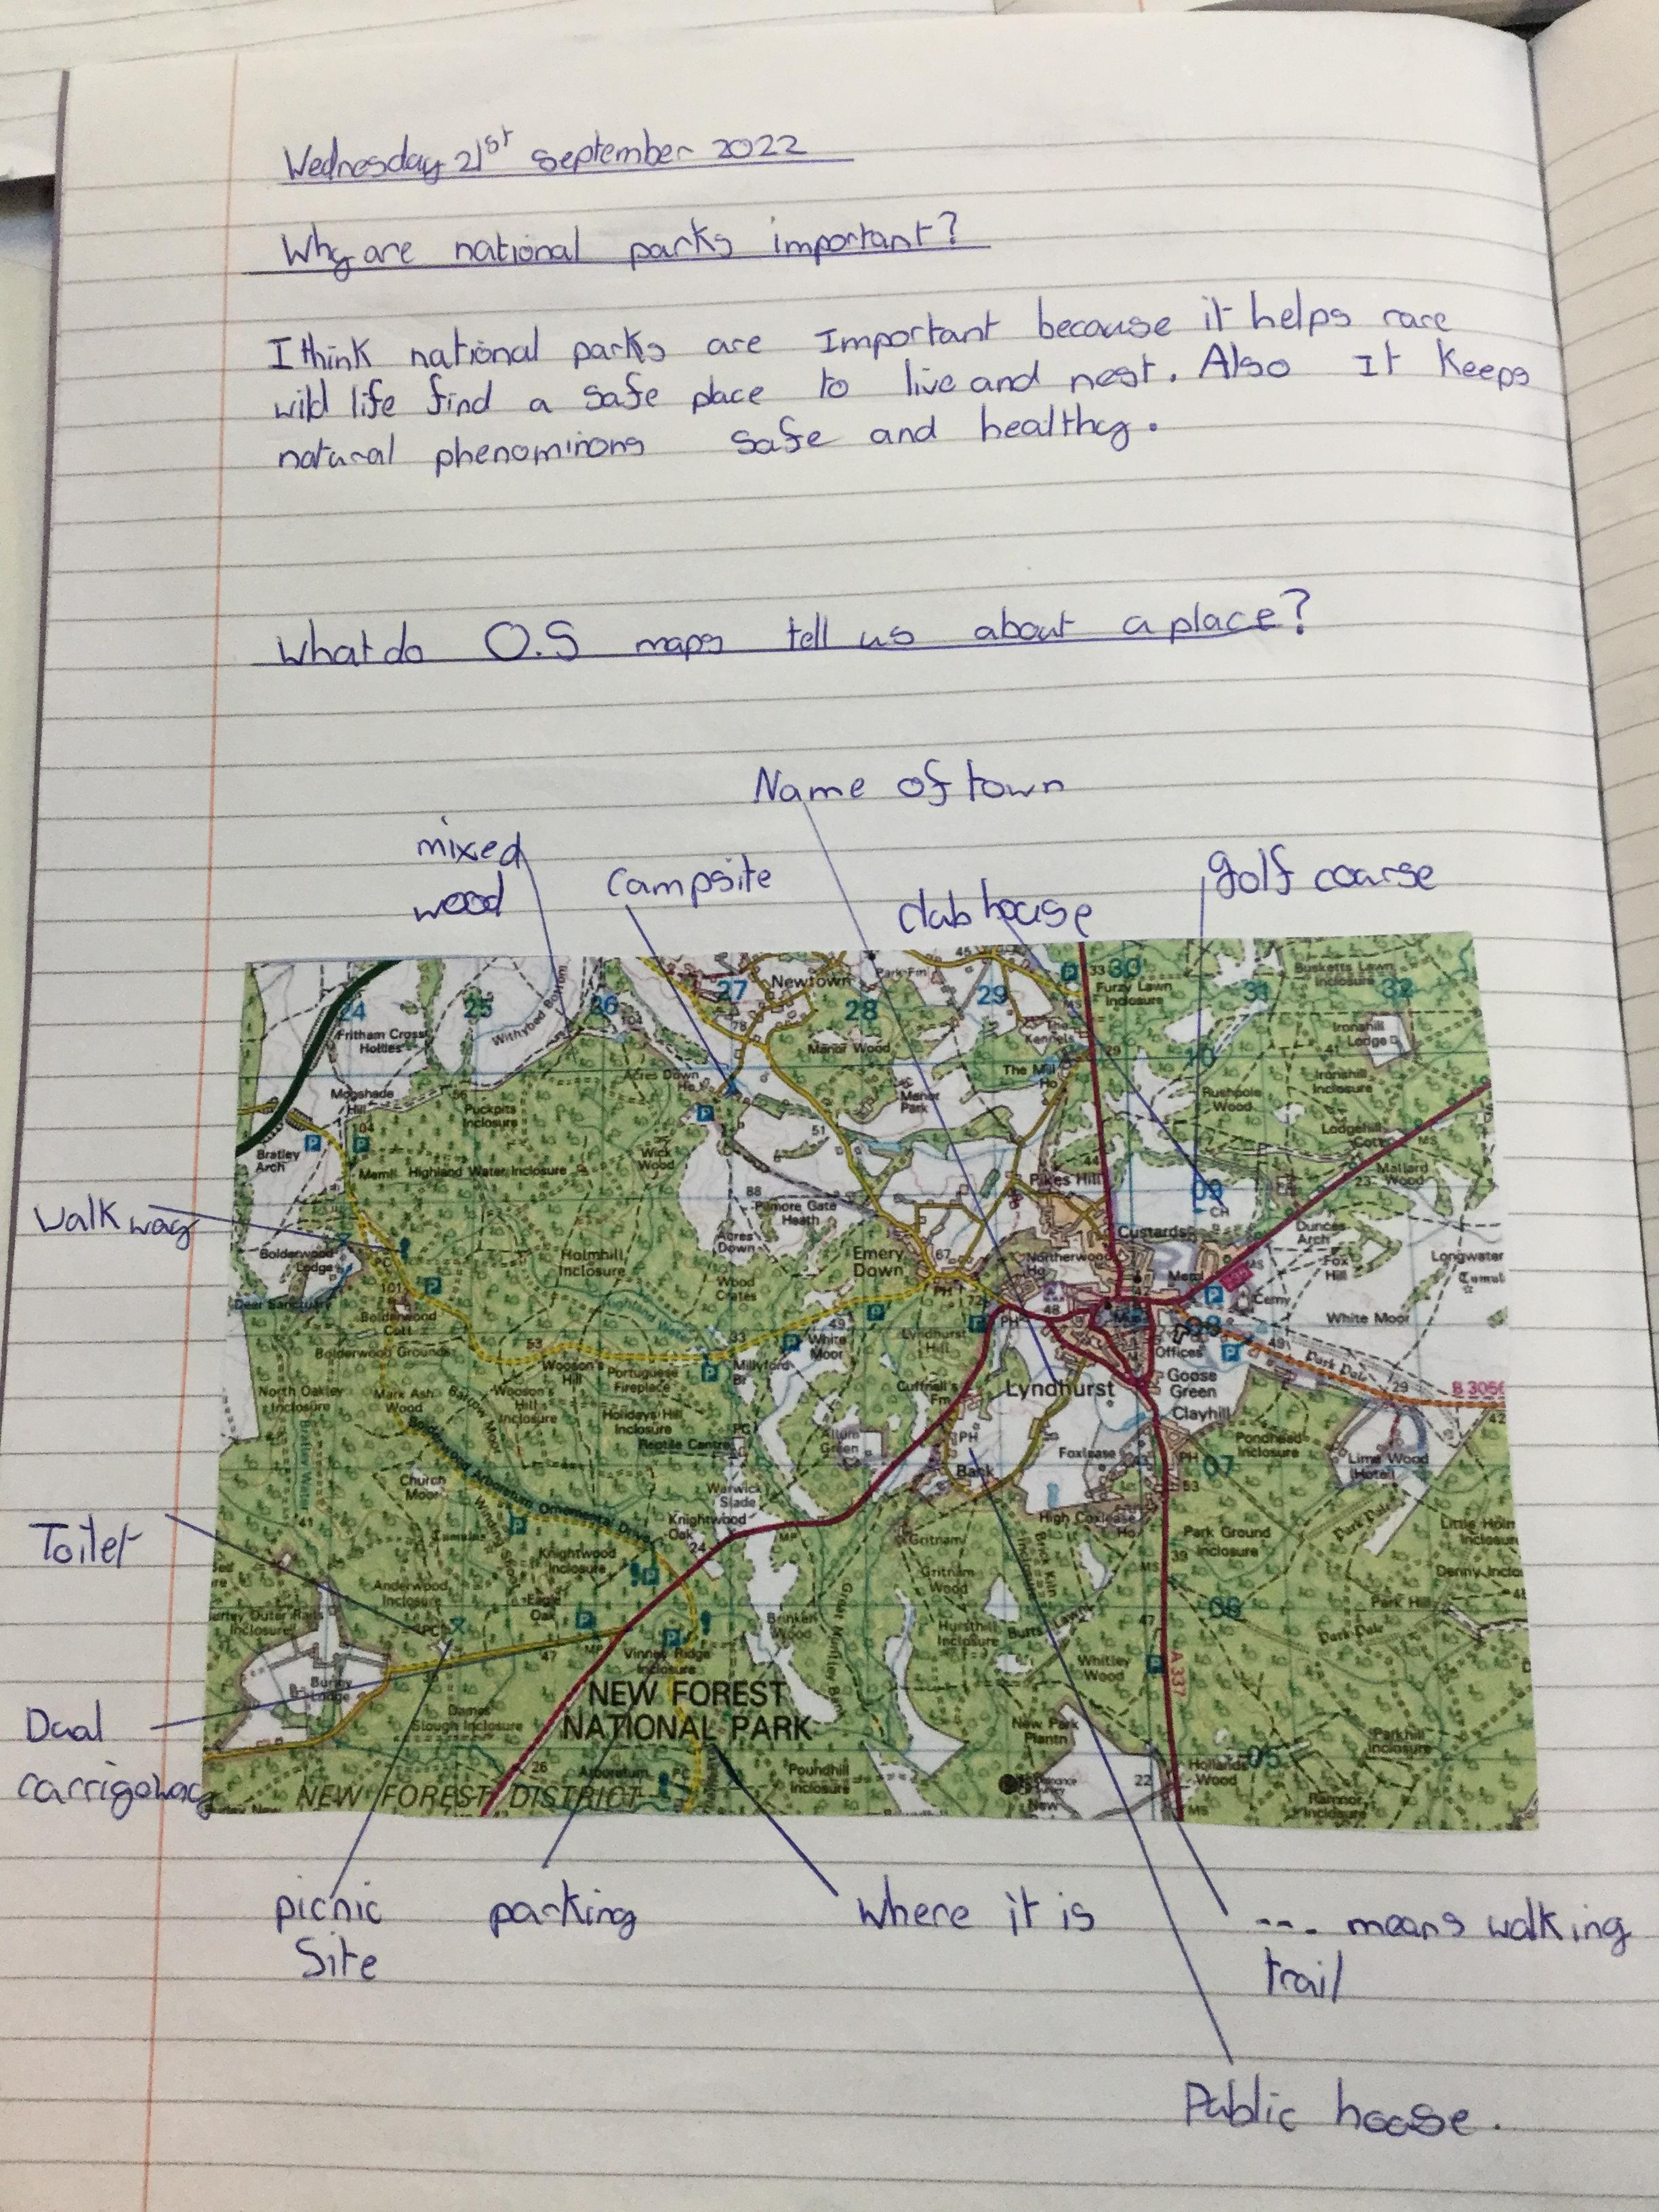 Wednesday 21st September 2022
Why are national parks important?
I think national parks are Important because it helps rare
wild life find a safe place to live and nest. Also It Keeps
natural phenominons safe and healthy.
What do O.S maps tell us about a place?
Name of town
mixed
wood
campsite
club house
golf coarse
Walk way
Toilet
Dual
carrigeway
picnic
Site
parking
where it is
--- means walking
trail
Public house.
24
25
26
27
28
29
30
31
32
Fritham Cross
Hollies
Withybed Bottom
Newtown
Manor Wood
Furzy Lawn
Inclosure
Busketts Lawn
Inclosure
Ironshill
Lodge
Ironshill
Inclosure
The
Kennels
The Mill
Ho
Manor
Park
Rushpole
Wood
Lodgehill
Cott
Mallard
Wood
Acres Down
Ho
Mogshade
Hill
Puckpits
Inclosure
Bratley
Arch
Meml
Highland Water Inclosure
Wick
Wood
Pikes Hill
Pilmore Gate
Heath
Acres
Down
09
CH
Custards
Dunces
Arch
Fox
Hill
Longwater
White Moor
Bolderwood
Lodge
Deer Sanctuary
Holmhill
Inclosure
Wood
Crates
Emery
Down
Northerwood
Ho
Cemy
Bolderwood
Cott
Bolderwood Grounds
Highland Water
Lyndhurst
Hill
White
Moor
Millyford
Br
Portuguese
Fireplace
Wooson's
Hill
Offices
Park Pale
B 3056
Goose
Green
Clayhill
Lyndhurst
Cuffnell's
Fm
North Oakley
Inclosure
Mark Ash
Wood
Barrow Moor
Wooson's
Hill
Inclosure
Holidays Hill
Inclosure
Reptile Centre
Allum
Green
PH
Bank
Foxlease
Pondhead
Inclosure
07
Lime Wood
(Hotel)
Bratley Water
Bolderwood Arboretum Ornamental Drive
Church
Moor
Warwick
Slade
Knightwood
Oak
High Coxlease
Ho
Park Ground
Inclosure
Park Pale
Little Holm
Inclosure
Denny Inclo
Gritnam
Gritnam
Wood
Brick Kiln
Inclosure
Knightwood
Inclosure
Anderwood
Inclosure
Eagle
Oak
Burley Outer Rails
Inclosure
Brinken
Wood
Hursthill
Inclosure
Butts Lawn
06
Park Hill
Park Pale
Burley
Lodge
Vinney Ridge
Inclosure
Whitley
Wood
A 337
NEW FOREST
NATIONAL PARK
Dames
Slough Inclosure
New Park
Plantn
Parkhill
Inclosure
Poundhill
Inclosure
Hollands
Wood
05
Ramnor
Inclosure
Arboretum
NEW FOREST DISTRICT